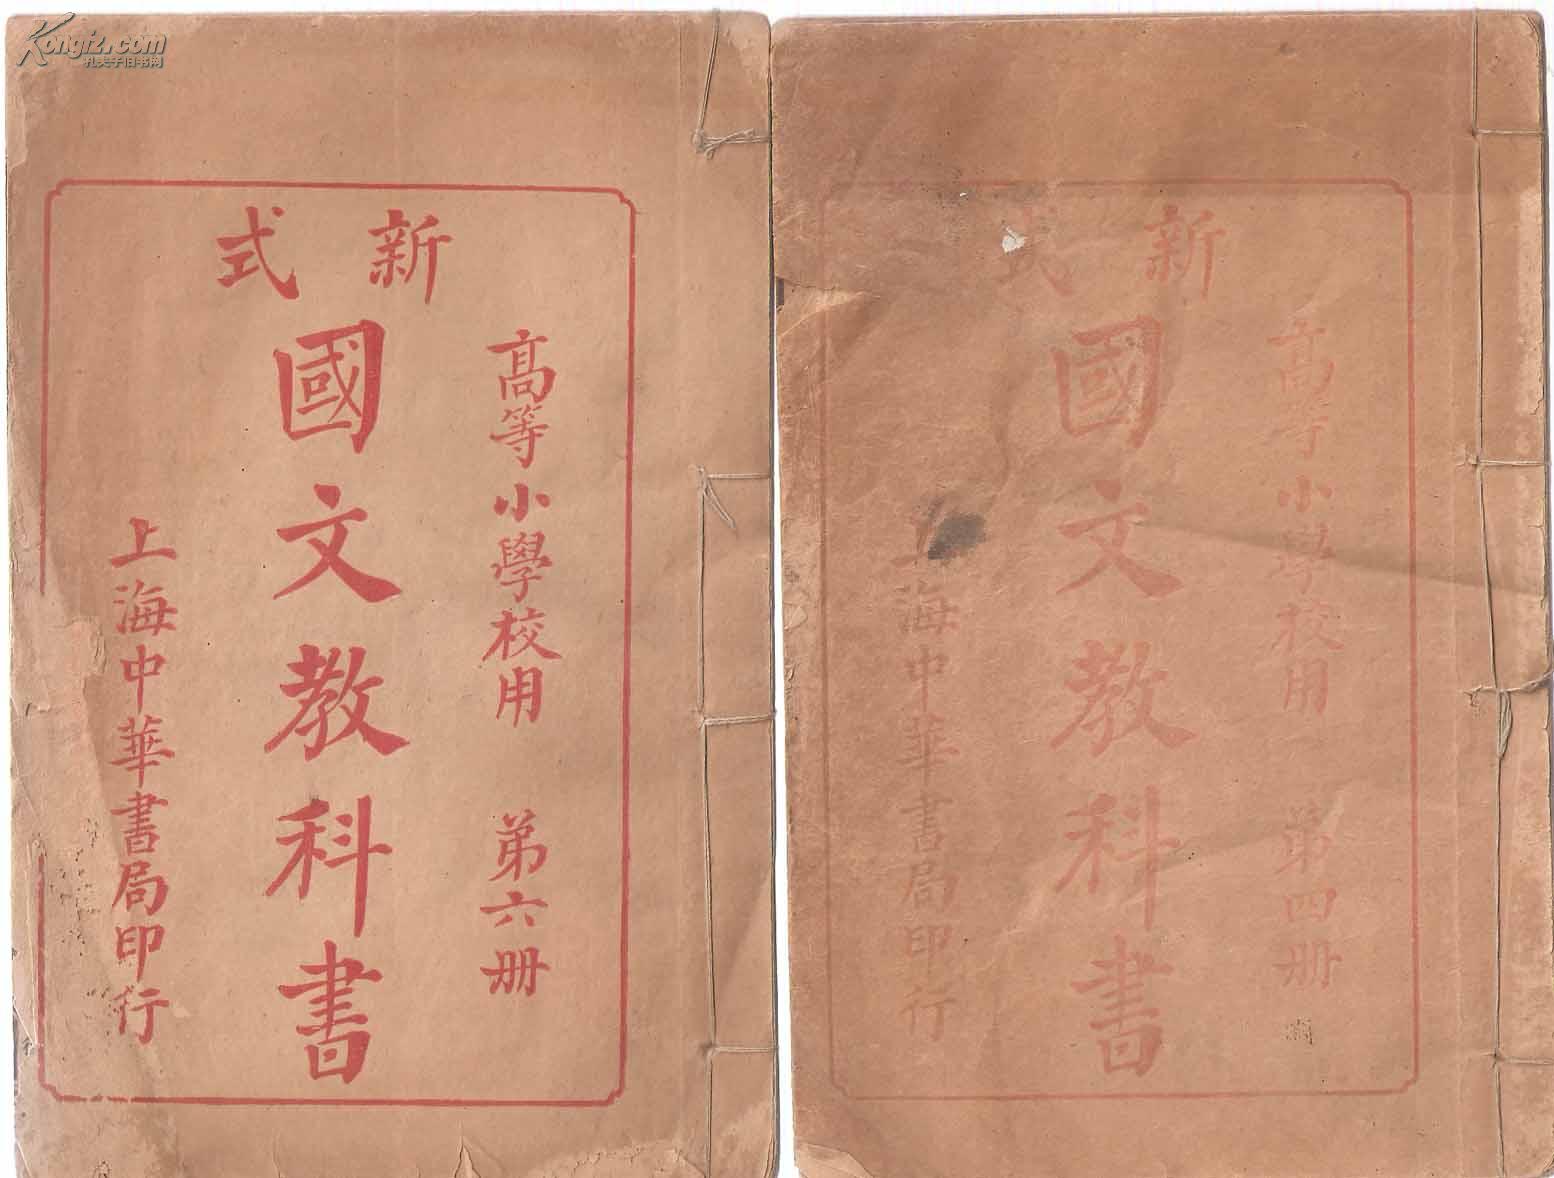 Kongfz.com
孔夫子旧书网
新式
高等小學校用 第六册
國文教科書
上海中華書局印行
新式
高等小學校用 第四册
國文教科書
上海中華書局印行